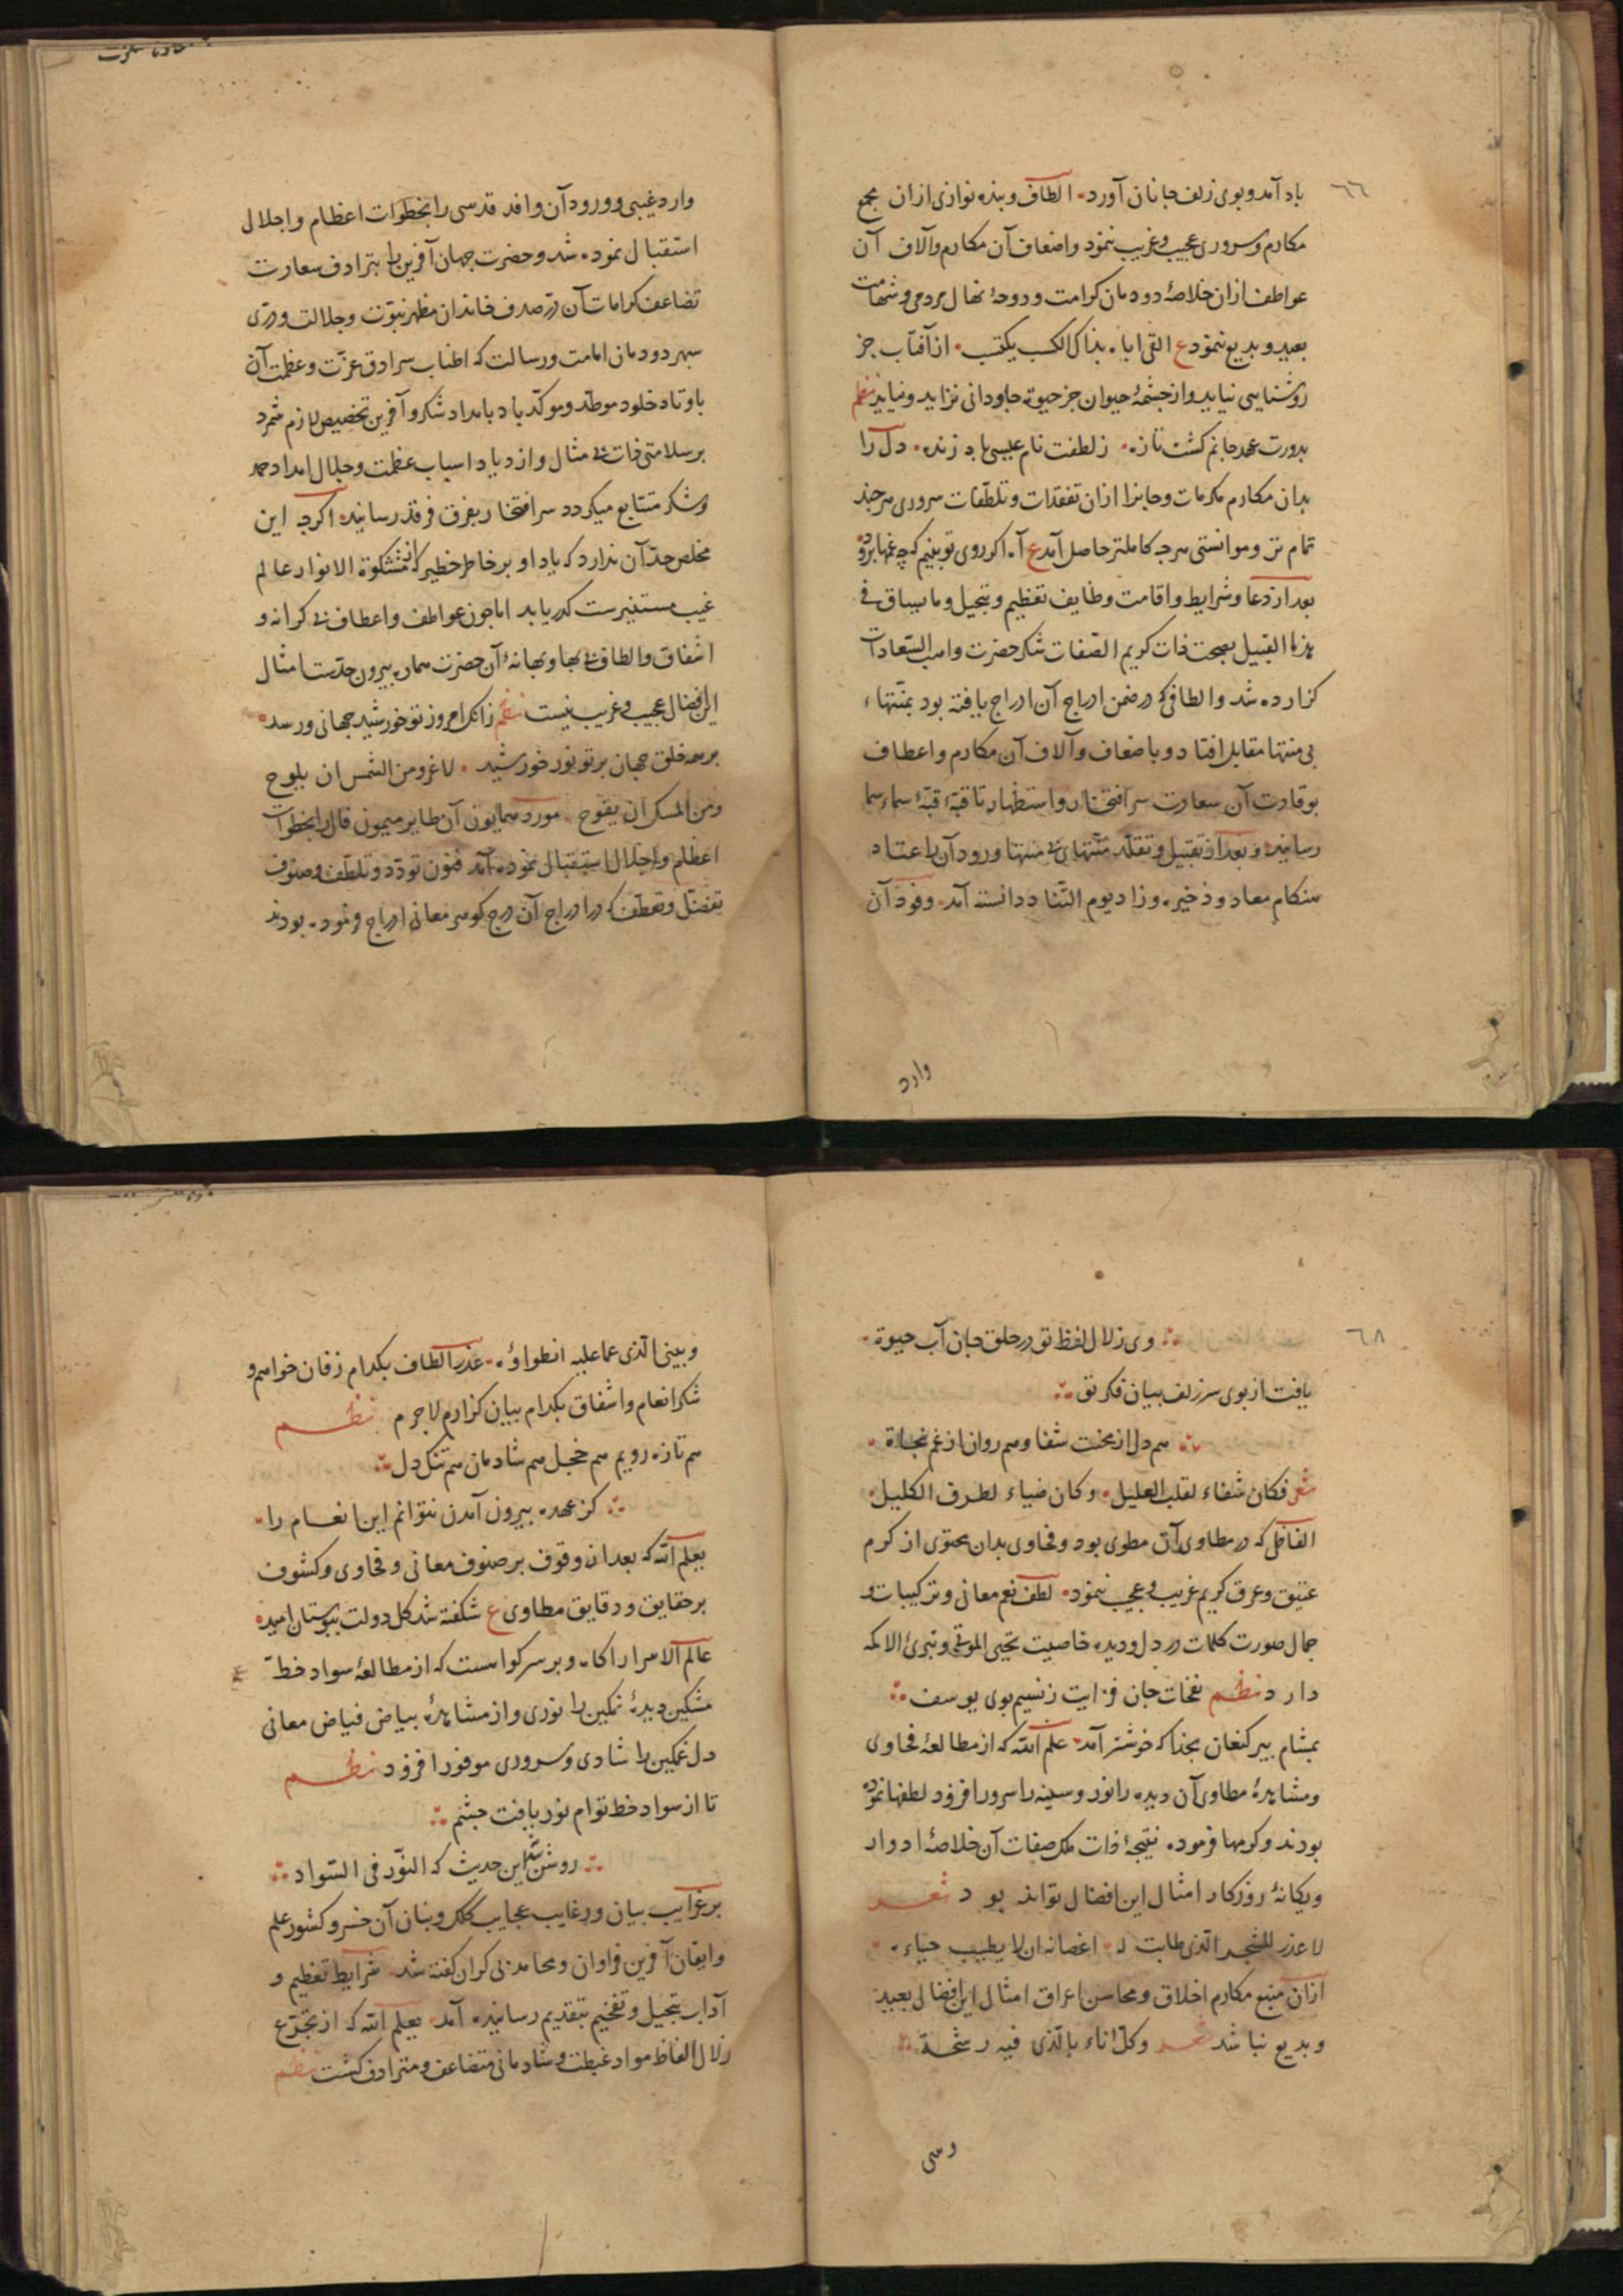 ٦٦
باد آمد و بوی زلف جانان آورد الطاف و بنده نوازی ازان مجمع
مکارم و سروری عجیب و غریب ننمود و اضعاف آن مکارم و آلاف آن
عواطف ازان خلاصهٔ دودمان کرامت و دوحهٔ نهال مردمی و شهامت
بعید و بدیع ننمود ع از آفتاب جز
روشنایی نیاید و از چشمهٔ حیوان جز حیوة جاودانی نزاید و نیاید نظم
جانم کشت تازه ز لطفت نام عیسی باد زنده دل را
بدان مکارم مکرمات و جانرا ازان تفقدات و تلطفات سروری هرچند
تمام تر و موانستی هرچه کاملتر حاصل آمد ع آه اکر روی تو بینم که چه غمها برود
بعد از دعا و شرایط و اقامت وظایف تعظیم و تبجیل و ما ینساق فی
هذا القبیل بصحت ذات کریم الصفات شکر حضرت واهب السعادات
کزارده شد و الطافی که در ضمن ادراج آن ادراج یافته بود بمنتهاء
بی منتها مقابل افتاد و باضعاف و آلاف آن مکارم و اعطاف
بوفادت آن سعادت سر افتخار و استظهار تا قبهٔ قبهٔ سماء سما
رسانید و بعد از تقبیل و تقلد منتهای بی منتها ورود آن را عتاد
هنکام معاد و ذخیره و زاد یوم التناد دانسته آمد وفود آن
وارد
وارد غیبی و ورود آن وافد قدسی را بخطوات اعظام و اجلال
استقبال نموده شد و حضرت جهان آفرین را بترادف سعادت
تضاعف کرامات آن در صدف خاندان مظهر نبوت و جلالت و دری
سپهر دودمان امامت و رسالت که اطناب سرادق عزت و عظمت آن
باوتاد خلود موطد و موکد باد بامداد شکر و آفرین تخصیص لازم شمرد
بر سلامتی ذات بی مثال و ازدیاد اسباب عظمت و جلال امداد حمد
و شکر متتابع میکردد سر افتخار بفرق فرقد رسانید اکرچه این
مخلص حد آن ندارد که یاد او بر خاطر خطیر که از مشکوة الانوار عالم
غیب مستنیرست کذر یابد اما چون عواطف و اعطاف بی کرانه و
اشفاق و الطاف بی بها و بهانهٔ آن حضرت هماره بیرون حدست امثال
این افضال عجیب و غریب نیست نظم زانکه امروز تو خورشید جهانی و رسد
بر همه خلق جهان پرتو نور خورشید لا غرو من الشمس ان یلوح
و من المسک ان یفوح مورد همایون آن طایر میمون فال را بخطوات
اعظام و اجلال استقبال نموده آمد فنون تودد و تلطف و صنوف
تفضل و تعطف که در ادراج آن درج کوهر معانی ادراج فرموده بودند
٦٨
وی زلال لفظ تو در حلق جان آب حیوة
یافت از بوی سر زلف بیان فکر تو
هم دل از محنت شفا و هم روان از غم نجاة
شعر فکان شفاء لقلب العلیل وکان ضیاء لطرف الکلیل
الفاظی که در مطاوی آن مطوی بود و فحاوی بدان محتوی از کرم
عتیق و عرق کریم غریب و عجیب ننمود لطف نغم معانی و ترکیبات و
جمال صورت کلمات در دل و دیده خاصیت تحیی الموتی و تبری الاکمه
دارد نظم نفحات جان فزایت ز نسیم بوی یوسف
بمشام پیر کنعان بخدا که خوشتر آمد علم الله که از مطالعهٔ فحاوی
و مشاهدهٔ مطاوی آن دیده را نور و سینه را سرور افزود لطفها نموده
بودند و کرمها فرموده نتیجهٔ ذات ملک صفات آن خلاصهٔ ادوار
و یکانهٔ روزکار امثال این افضال تواند بود شعر
لا عذر للشجر الذی طابت له اغصانه ان لا یطیب جناءه
ازان منبع مکارم اخلاق و محاسن اعراق امثال این افضال بعید
و بدیع نباشد شعر وکل اناء بالذی فیه رشحة
وبینی الذی عما علیه انطواؤه عذر الطاف بکدام زفان خواهم و
شکر انعام و اشفاق بکدام بیان کزارم لاجرم نظم
هم تازه رویم هم خجل هم شادمان هم تنک دل
کز عهده بیرون آمدن نتوانم این انعام را
یعلم الله که بعد از وقوف بر صنوف معانی و فحاوی و کشوف
بر حقایق و دقایق مطاوی ع شکفته شد کل دولت ببوستان امید
عالم الاسرار آکاه و بر سر کواهست که از مطالعهٔ سواد خط
مشکین دیدهٔ نمکین را نوری و از مشاهدهٔ بیاض فیاض معانی
دل غمکین را شادی و سروری موفور افزود نظم
تا از سواد خط توام نور یافت چشم
روشن شد این حدیث که النور فی السواد
بر غرایب بیان و رغایب عجایب کلک و بنان آن خسرو کشور علم
و ایقان آفرین فراوان و محامد بی کران کفته شد شرایط تعظیم و
آداب تبجیل و تفخیم بتقدیم رسانیده آمد یعلم الله که از تجرع
زلال الفاظ مواد غبطت و شادمانی متضاعف و مترادف کشت نظم